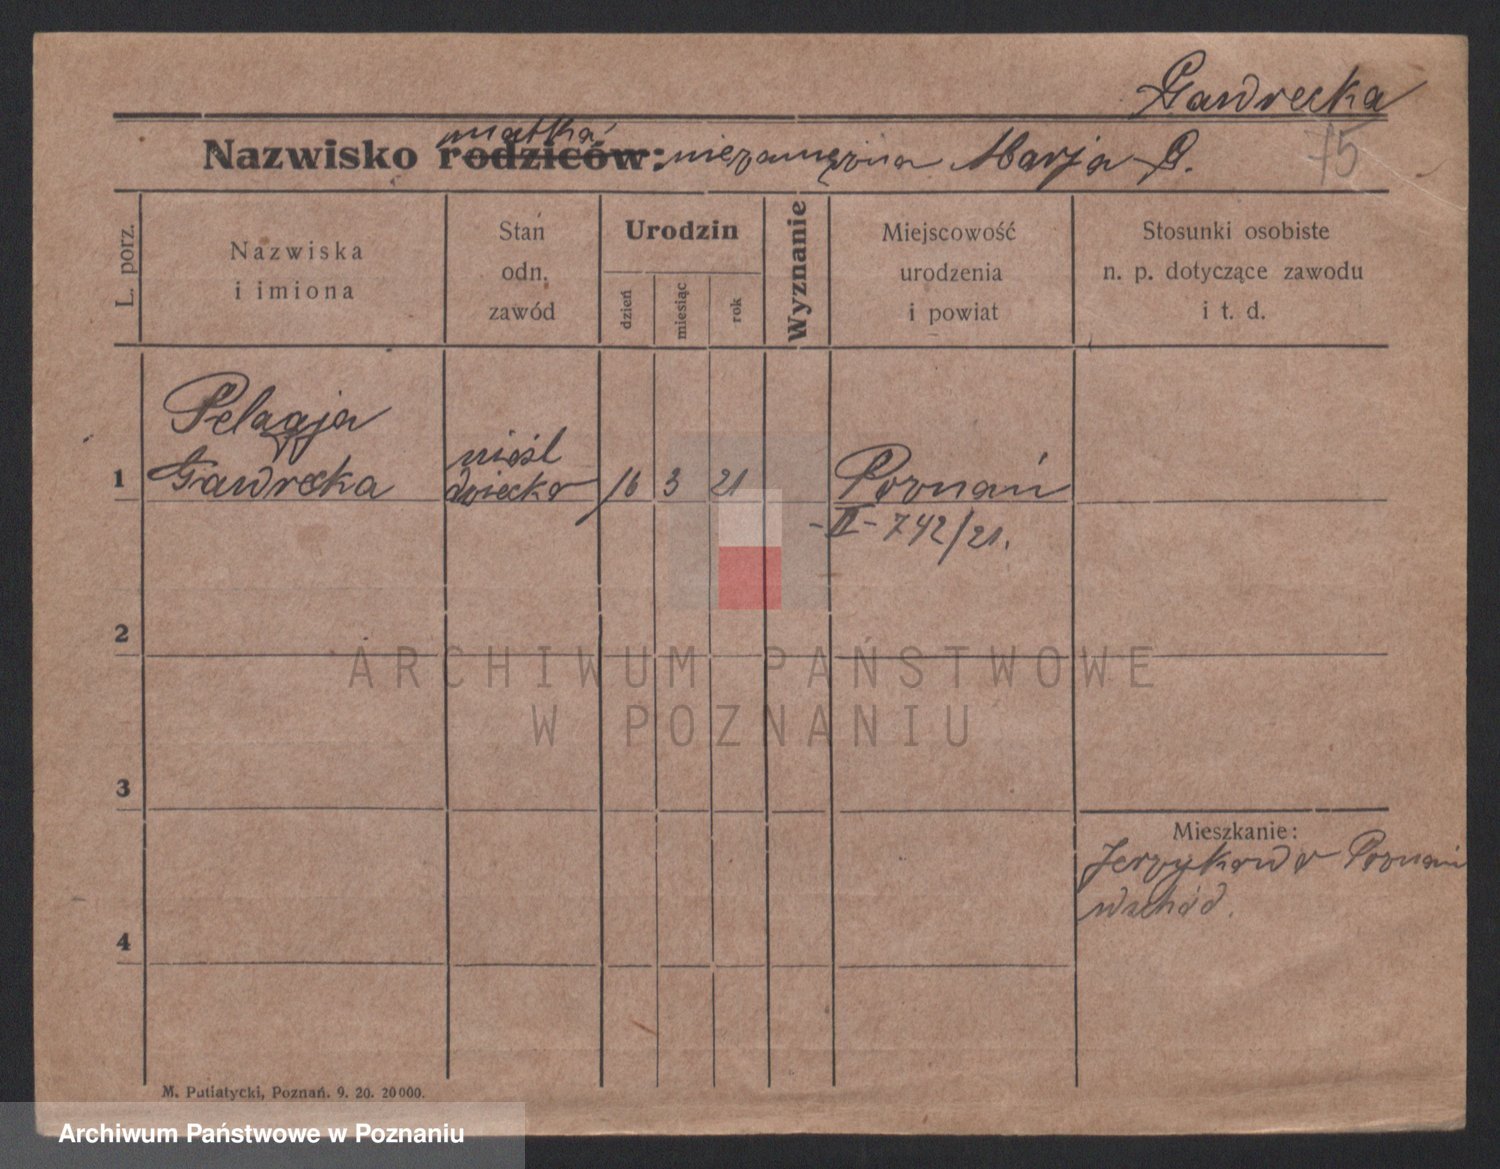 Gawrecka
75
matka
Nazwisko rodziców: niezamężna Marja G.
L. porz.
Nazwiska
i imiona
Stan
odn.
zawód
Urodzin
dzień
miesiąc
rok
Wyznanie
Miejscowość
urodzenia
i powiat
Stosunki osobiste
n. p. dotyczące zawodu
i t. d.
Pelagja
1 Gawrecka
nieśl
dziecko 16 3 21 Poznań
-II- 742/21.
2
ARCHIWUM PAŃSTWOWE
W POZNANIU
3
Mieszkanie:
Jerzykowo Poznań
wschód.
4
M. Putiatycki, Poznań. 9. 20. 20000.
Archiwum Państwowe w Poznaniu